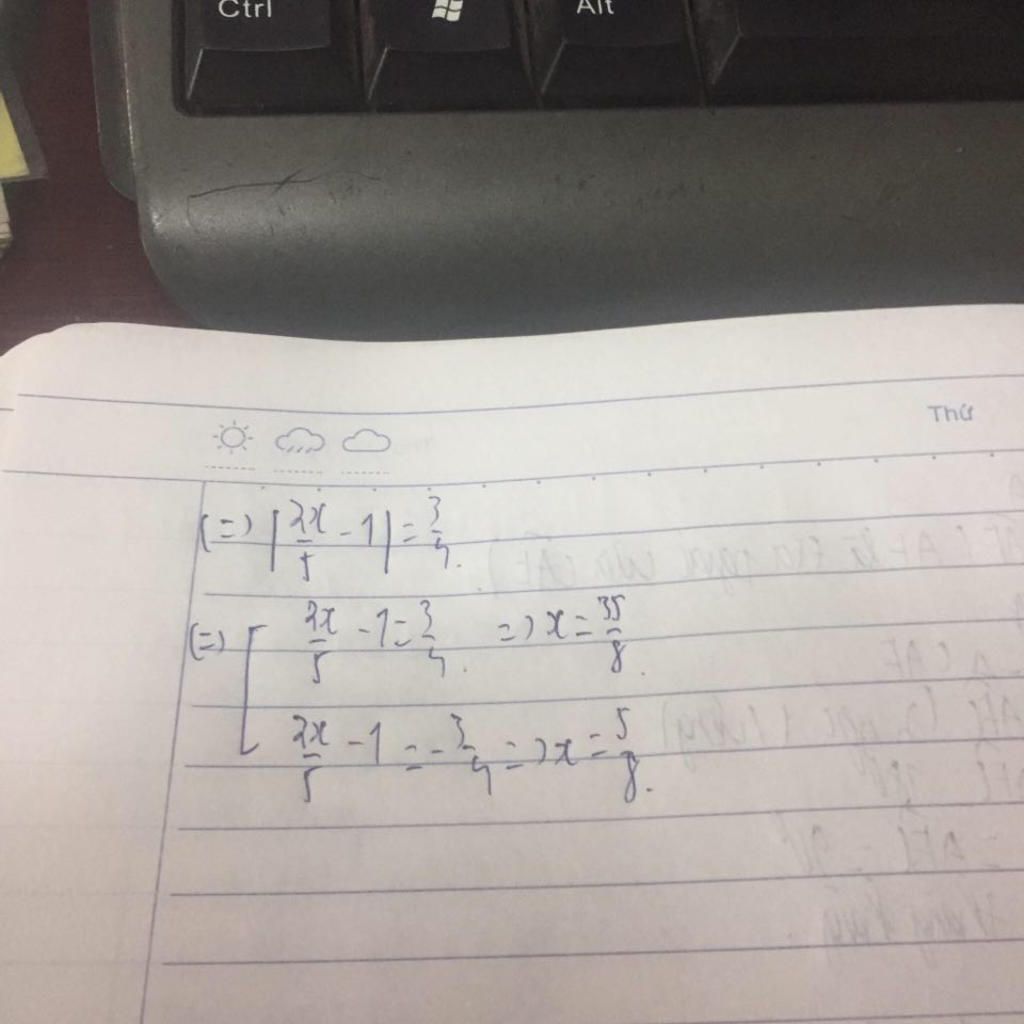 Ctrl Alt
Thứ
(=) |2x/5 - 1| = 3/4.
(=) [ 2x/5 - 1 = 3/4. => x = 35/8.
2x/5 - 1 = -3/4 => x = 5/8.